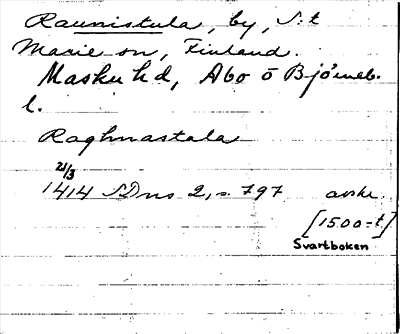 Raunistula, by, S:t
Marie sn, Finland.
Masku hd, Åbo o Björneb.
l.
Raghnastala
21/3
1414 SDns 2, s. 797 avskr.
[1500-t.]
Svartboken